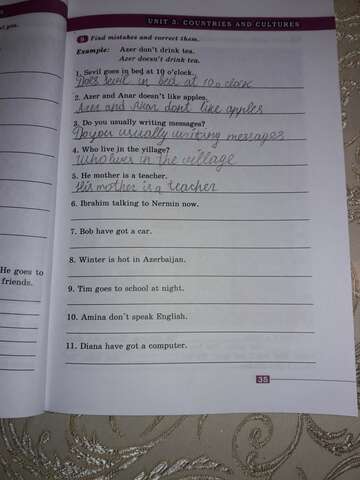 UNIT 3. COUNTRIES AND CULTURES
9 Find mistakes and correct them.
Example: Azer don't drink tea.
Azer doesn't drink tea.
1. Sevil goes in bed at 10 o'clock.
Does sevil in bed at 10 o clock
2. Azer and Anar doesn't like apples.
Azer and Anar dont like apples
3. Do you usually writing messages?
Do you usually writing messages
4. Who live in the village?
Who lives in the village
5. He mother is a teacher.
His mother is a teacher
6. Ibrahim talking to Nermin now.
7. Bob have got a car.
8. Winter is hot in Azerbaijan.
He goes to
friends.
9. Tim goes to school at night.
10. Amina don't speak English.
11. Diana have got a computer.
38